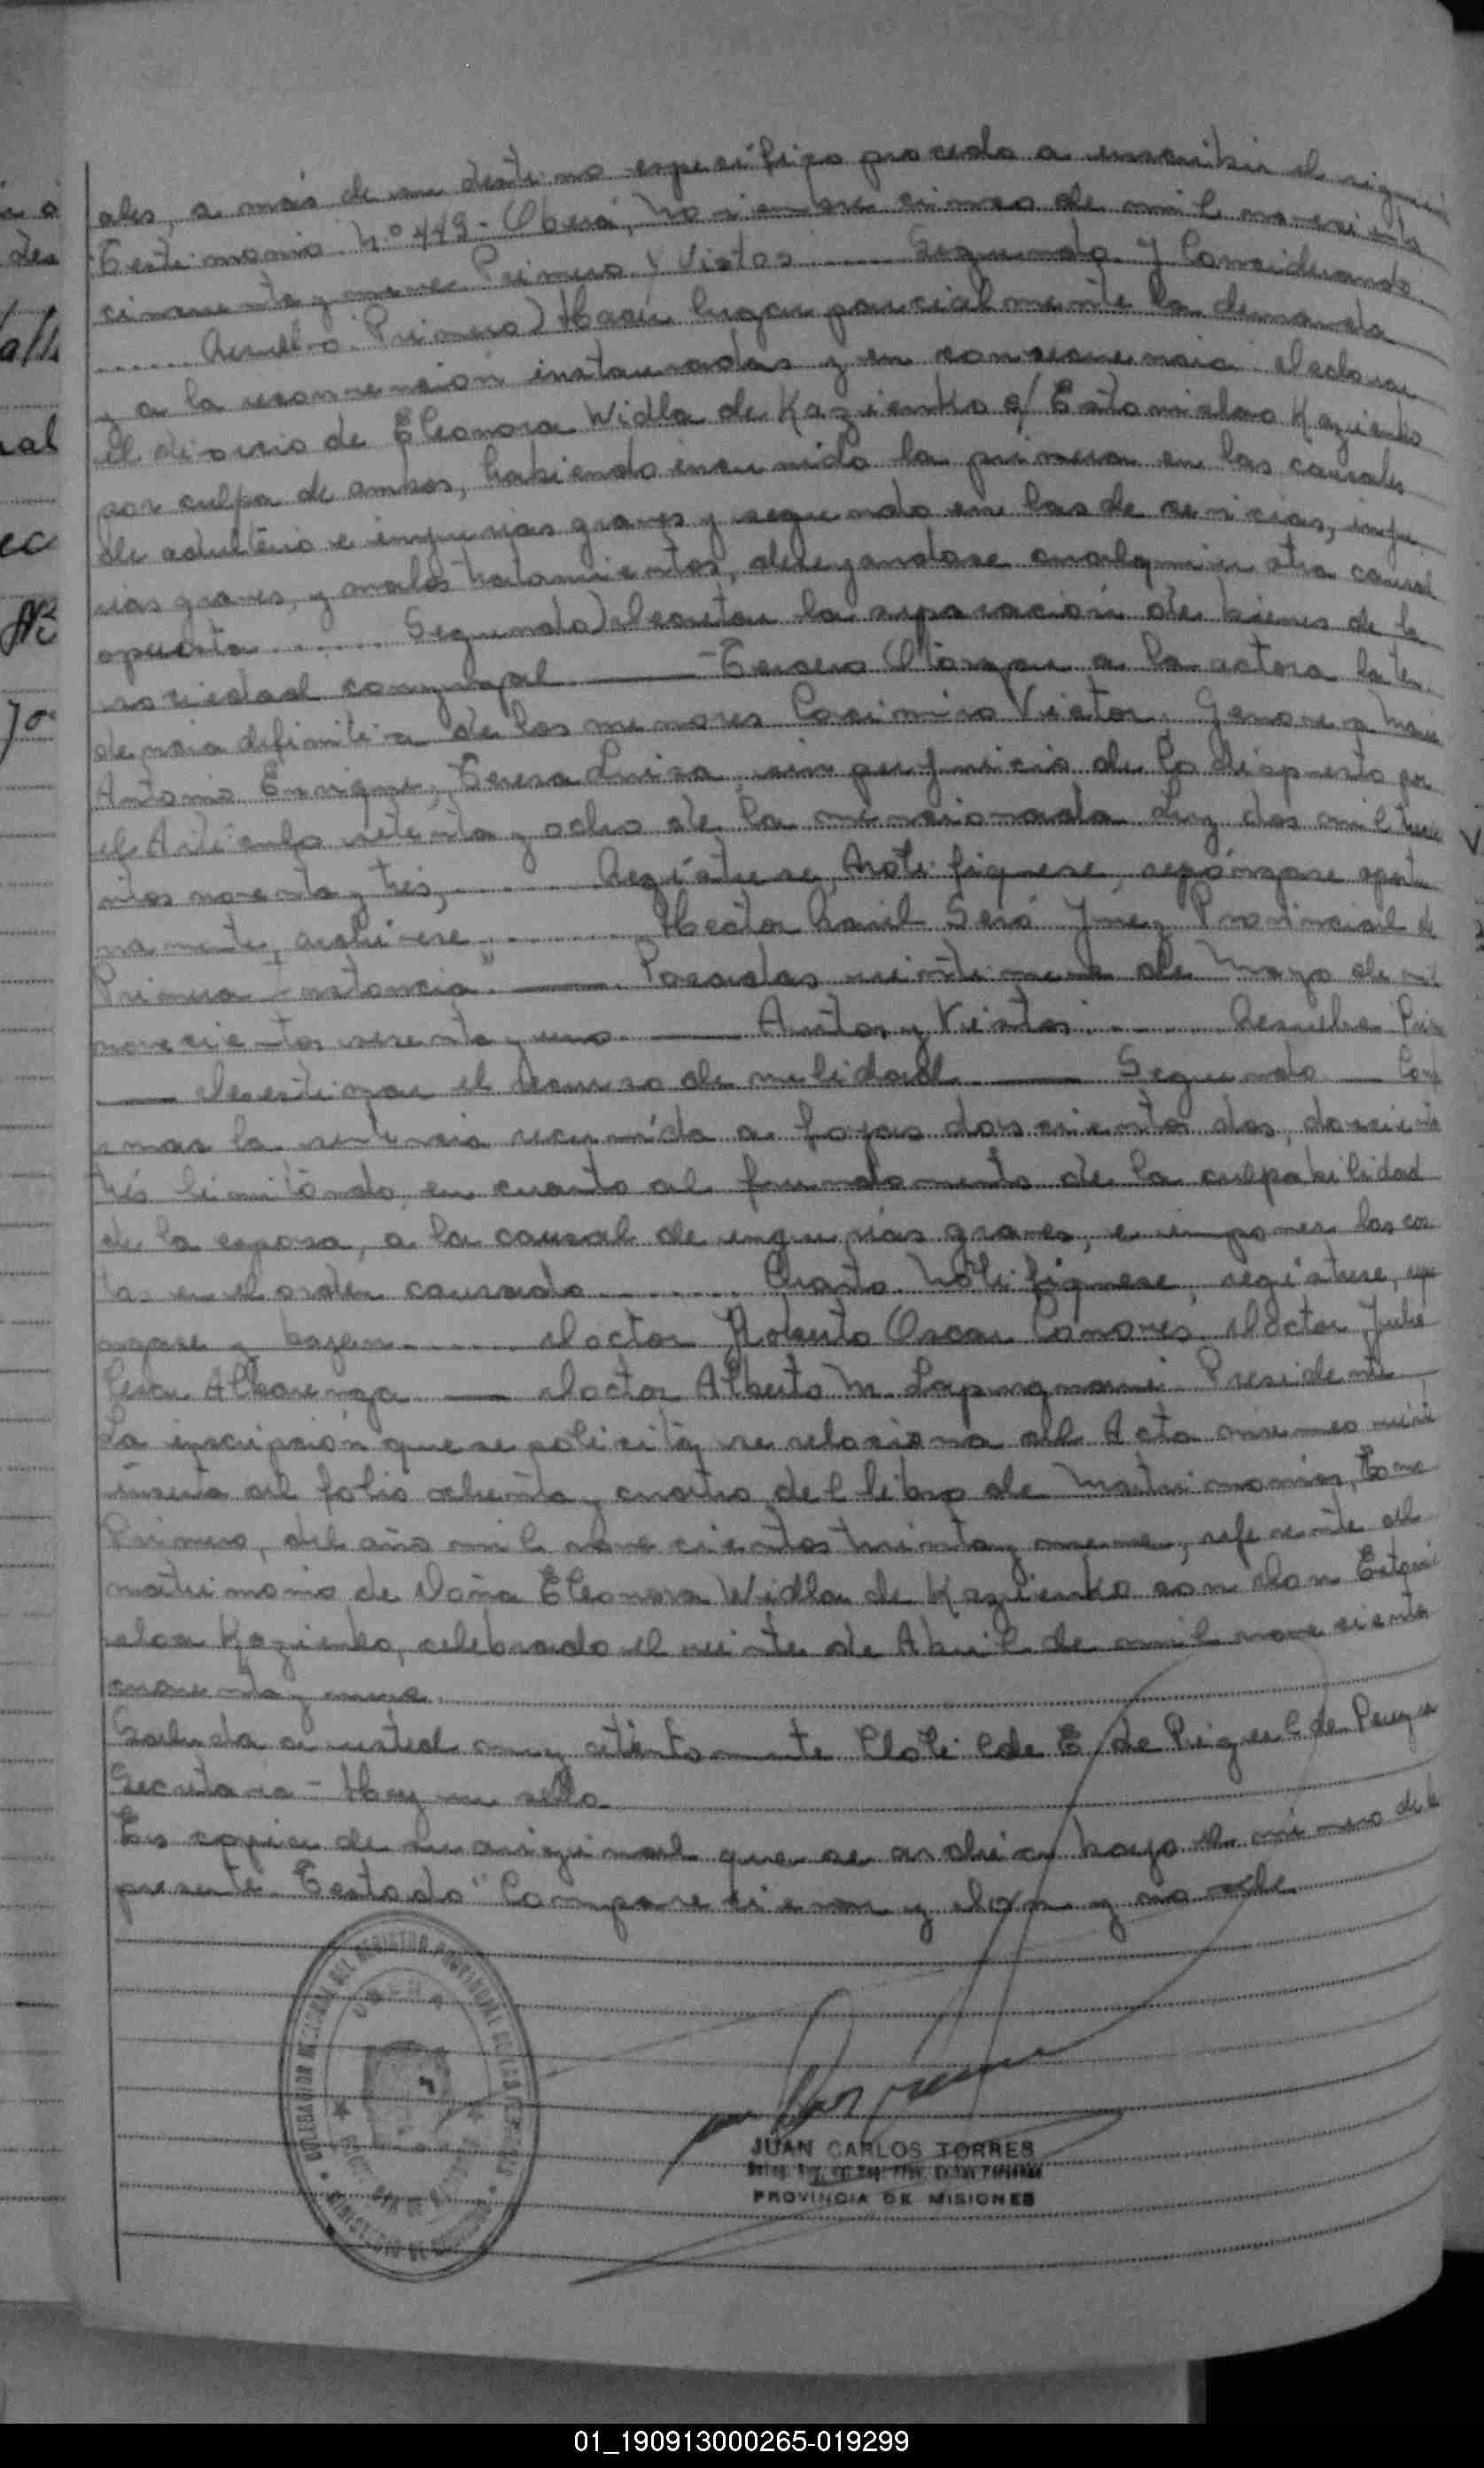 ales, a más de su destino específico procedo a inscribir el siguien
Testimonio N.° 449 - Oberá, Noviembre cinco de mil novecientos
cincuenta y nueve Primero Y Vistos ...... Segundo Y Considerando
...... Resuelvo: Primero) Hacer lugar parcialmente la demanda
y a la reconvención instauradas y en consecuencia declarar
el divorcio de Eleonora Widla de Kazienko c/ Estanislao Kazienko
por culpa de ambos, habiendo incurrido la primera en las causales
de adulterio e injurias graves y segundo en las de sevicias, inju
rias graves, y malos tratamientos, desegandose cualquier otra causal
opuesta ...... Segundo) decretar la separación de bienes de la
sociedad conyugal. —— Tercero Otorgar a la actora la ten
dencia definitiva de los menores Casimiro Victor, Genove
Antonio Enrique, Teresa Luisa, sin perjuicio de lo dispuesto por
el Artículo setenta y ocho de la mencionada Ley dos mil trecie
ntos noventa y tres, ...... Regístrese, Notifiquese, repóngase oportu
namente, archivese ...... Hector Raúl Seró Juez Provincial de
Primera Instancia". —— Posadas veintinueve de Mayo de mil
novecientos sesenta y uno —— Autos y Vistos ...... Resuelve Pri
—— desestimar el recurso de nulidad —— Segundo — Conf
irmar la sentencia recurrida a fojas doscientos dos, doscientos
trés limitando, en cuanto al fundamento de la culpabilidad
de la esposa, a la causal de injurias graves, e imponer las cos
tas en el orden causado ...... Cuarto Notifiquese, regístrese, rep
ongase y bajen ...... doctor Roberto Oscar Canores, doctor Julio
Cesar Albarenga —— doctor Alberto M. Presidente
La inscripción que se solicita, se relaciona al Acta número
inserta al folio ochenta y cuatro del libro de Matrimonios, Tomo
Primero, del año mil novecientos treinta y nueve, referente al
matrimonio de doña Eleonora Widla de Kazienko con don Estani
slao Kazienko, celebrado el veinte de Abril de mil novecientos
y nueve.
Saluda a usted muy atentamente Clotilde E. de Riguel de
Secretaria - Hay un sello
Es copia de su original que se archiva bajo el número de la
presente. Testado "Comparecieron y don y no vale
JUAN CARLOS TORRES
PROVINCIA DE MISIONES
01_190913000265-019299